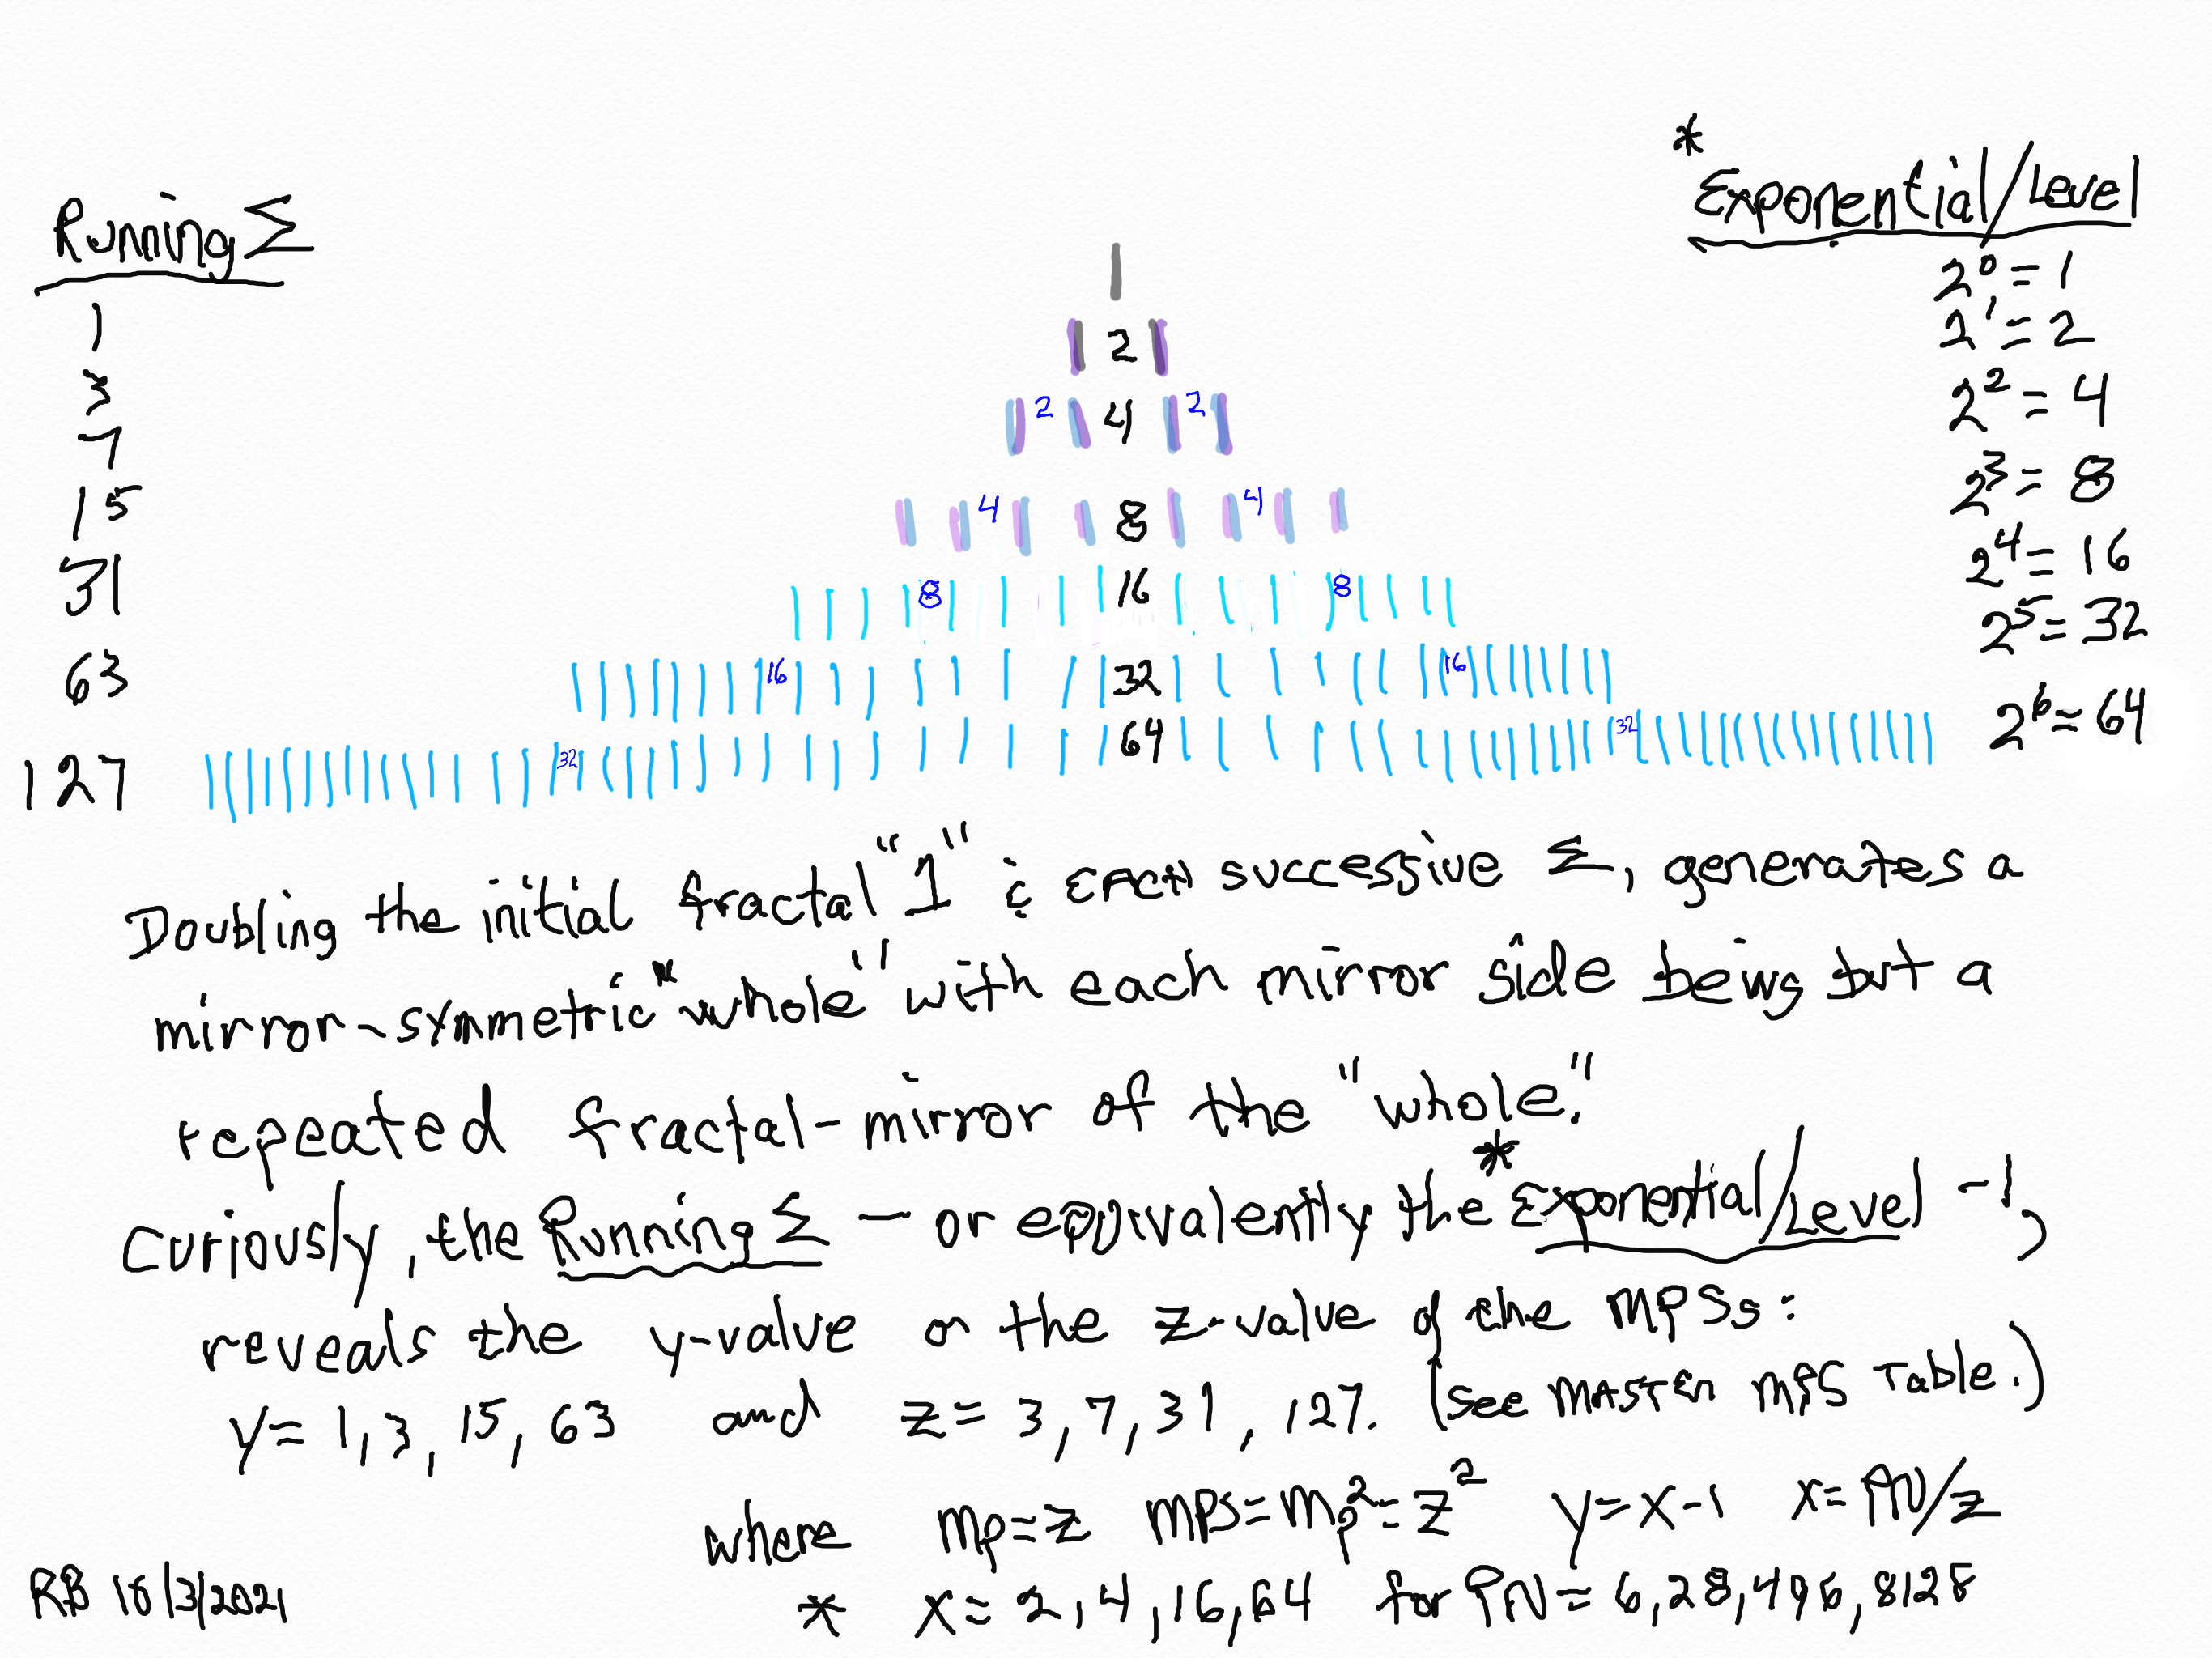 *
Running Σ
Exponential/Level
1
2⁰ = 1
3
2
2¹ = 2
7
2 4 2
2² = 4
15
4 8 4
2³ = 8
31
8 16 8
2⁴ = 16
63
16 32 16
2⁵ = 32
127
32 64 32
2⁶ = 64
Doubling the initial fractal "1" & EACH successive Σ, generates a
mirror-symmetric "whole" with each mirror side being but a
repeated fractal-mirror of the "whole."
Curiously, the Running Σ — or equivalently the *Exponential/Level -1,
reveals the y-value or the z-value of the MPSs:
y = 1, 3, 15, 63 and z = 3, 7, 31, 127. (See MASTER MPS Table.)
where Mp=z MPS=Mp²=z² y=x-1 x=PN/z
RB 10/3/2021 * x = 2, 4, 16, 64 for PN = 6, 28, 496, 8128